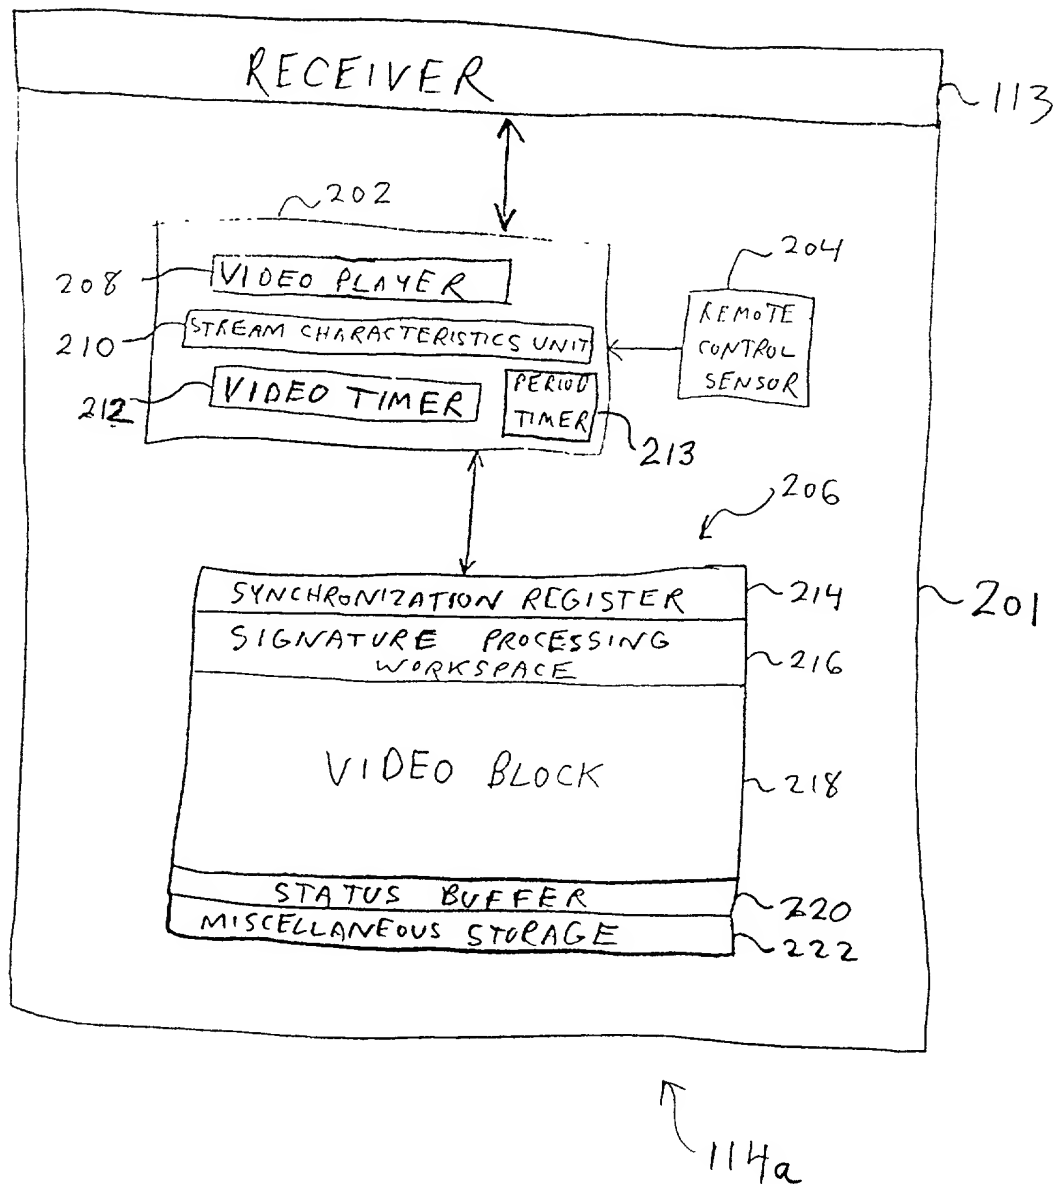 RECEIVER
113
202
208
VIDEO PLAYER
204
REMOTE
CONTROL
SENSOR
210
STREAM CHARACTERISTICS UNIT
212
VIDEO TIMER
PERIOD
TIMER
213
206
SYNCHRONIZATION REGISTER
214
201
SIGNATURE PROCESSING
WORKSPACE
216
VIDEO BLOCK
218
STATUS BUFFER
220
MISCELLANEOUS STORAGE
222
114a